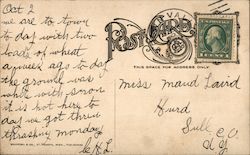 Oct 2
we are to town
to day with two
loads of wheat
a week ago to day
the ground was
white with snow
it is hot here to
day we got thru
thrashing Monday
POST CARD
THIS SPACE FOR ADDRESS ONLY
Miss Maud Laird
Hurd
Sull. Co
N.Y.